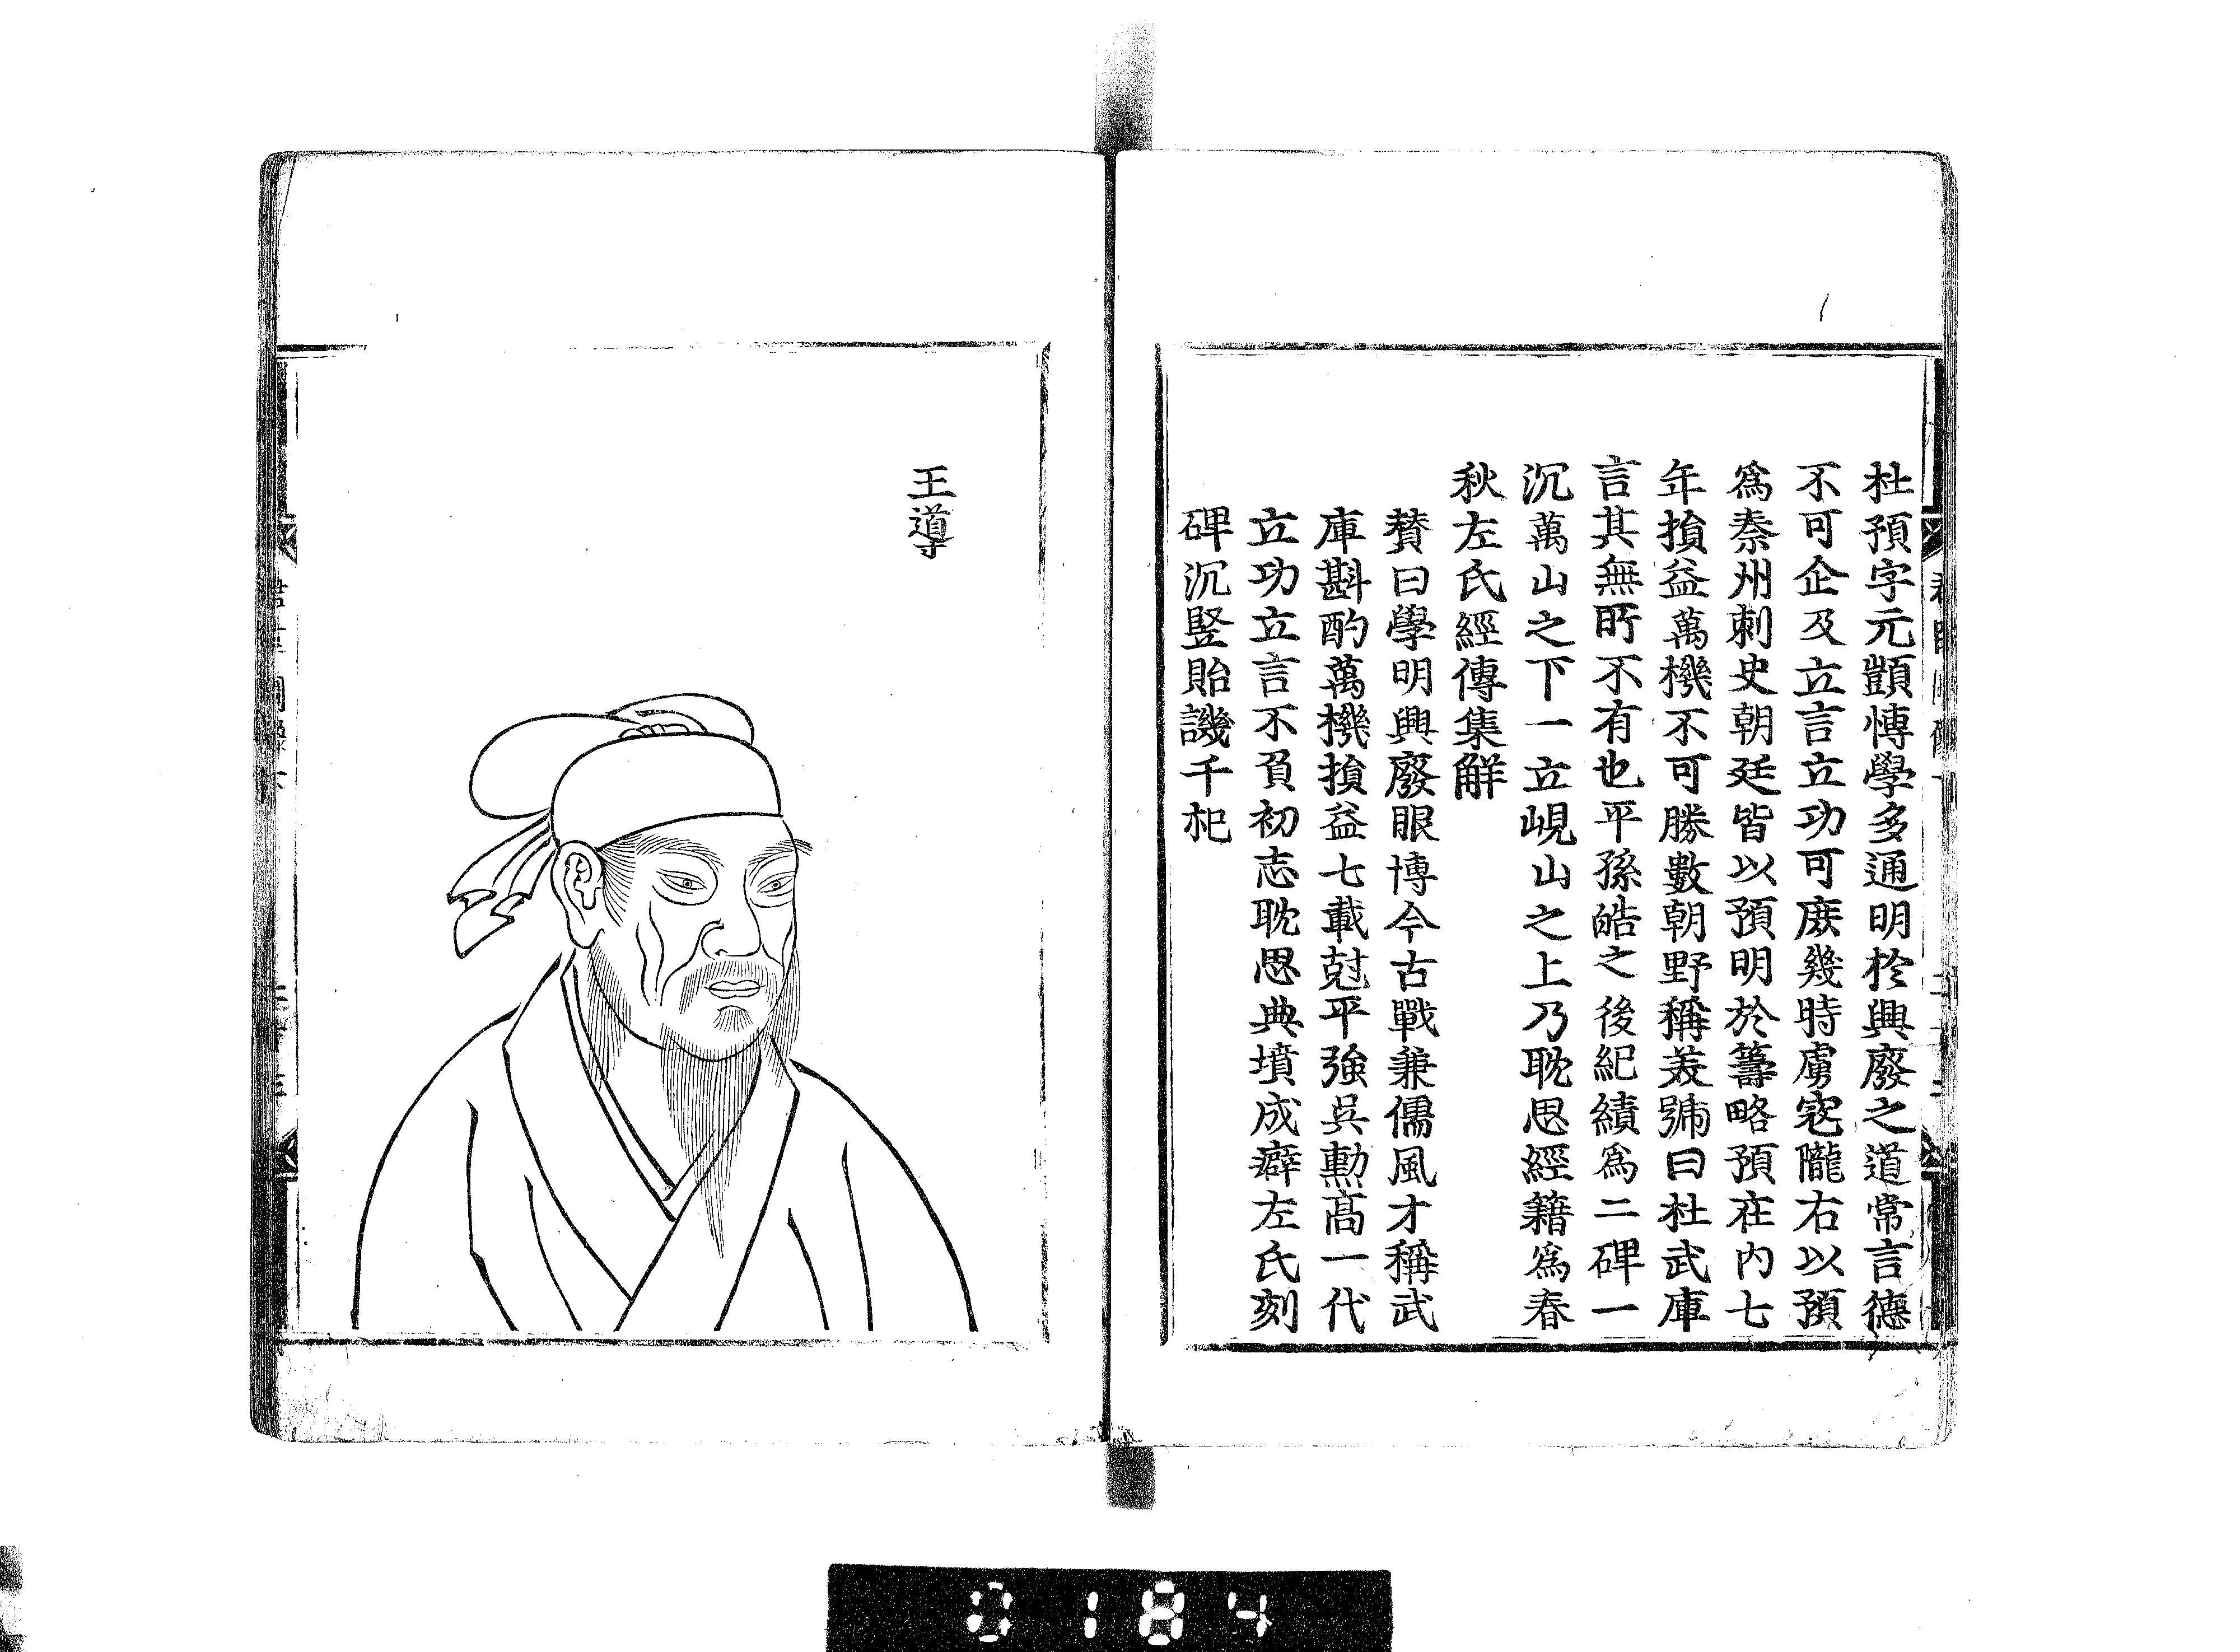 杜預字元顗愽學多通明於興廢之道常言德
不可企及立言立功可庻幾時虜宼隴右以預
爲秦州刺史朝廷皆以預明於籌略預在內七
年損益萬機不可勝數朝野稱羙號曰杜武庫
言其無所不有也平孫皓之後紀績爲二碑一
沉萬山之下一立峴山之上乃耽思經籍爲春
秋左氏經傳集解
賛曰學明興廢眼博今古戰兼儒風才稱武
庫斟酌萬機損益七載尅平強吳勳髙一代
立功立言不負初志耽思典墳成癖左氏刻
碑沉竪貽譏千𣏌
王導
0184